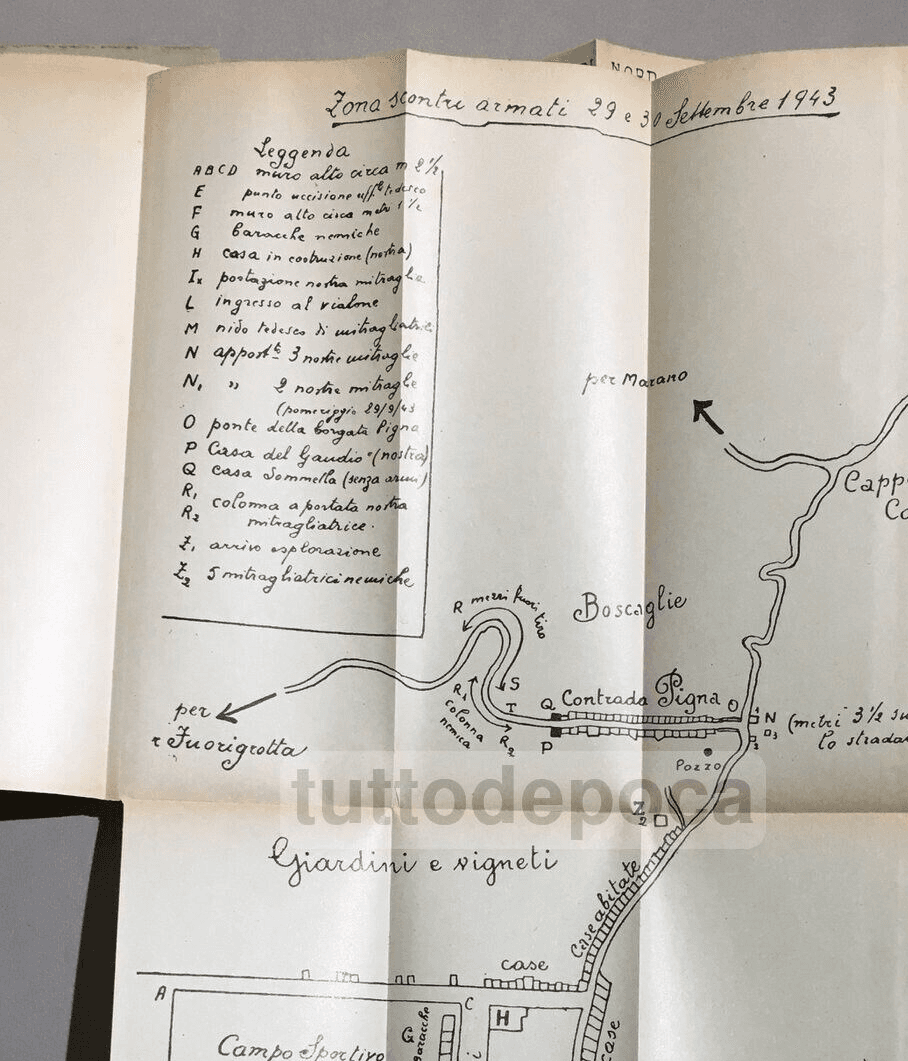 NORD
Zona scontri armati 29 e 30 Settembre 1943
Leggenda
A B C D muro alto circa m 2½
E punto uccisione uff.le tedesco
F muro alto circa metri 1½
G baracche nemiche
H casa in costruzione (nostra)
Ix postazione nostra mitraglia
L ingresso al vialone
M nido tedesco di mitragliatrici
N appost.te 3 nostre mitraglie
N1 " 2 nostre mitraglie
(pomeriggio 29/9/43
O ponte della borgata Pigna
P Casa del Gaudio (nostra)
Q casa Sommella (senza armi)
R1 colonna a portata nostra
R2 mitragliatrice.
Z1 arrivo esplorazione
Z2 5 mitragliatrici nemiche
per Marano
Capp
Ca
Boscaglie
R mezzi fuori tiro
S
T
R1 colonna nemica R2
Q Contrada Pigna O
P
1 N (metri 3½ su
3 lo strada
2
Pozzo
per
Fuorigrotta
tuttodepoca
Z2
Giardini e vigneti
Case abitate
case
A
C
H
G baracche
case
Campo Sportivo